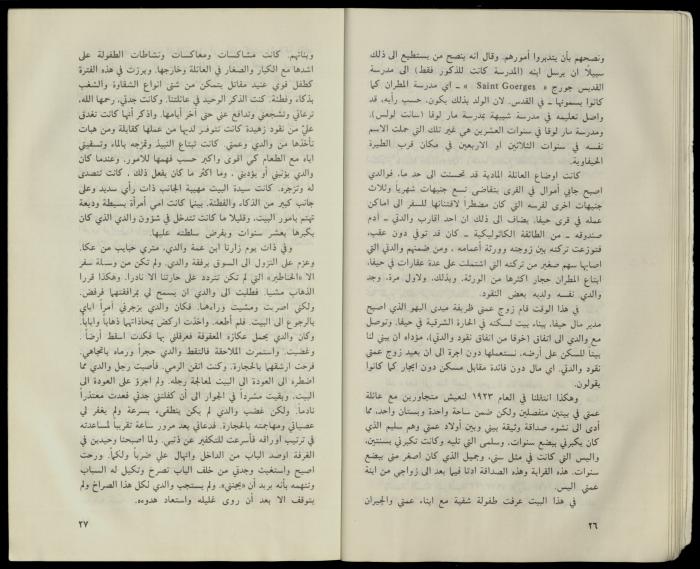 ونصحهم بأن يتدبروا أمورهم. وقال انه ينصح من يستطيع الى ذلك
سبيلًا ان يرسل ابنه (المدرسة كانت للذكور فقط) الى مدرسة
القديس جورج « Saint Goerges » ـ اي مدرسة المطران كما
كانوا يسمونها ـ في القدس. لان الولد بذلك يكون، حسب رأيه، قد
واصل تعليمه في مدرسة شبيهة بمدرسة مار لوقا (سانت لوكس).
ومدرسة مار لوقا في سنوات العشرين هي غير تلك التي حملت الاسم
نفسه في سنوات الثلاثين او الاربعين في مكان قرب الطيرة
الحيفاوية.
كانت اوضاع العائلة المادية قد تحسنت الى حد ما، فوالدي
اصبح جابي أموال في القرى بتقاضى تسع جنيهات شهريًا وثلاث
جنيهات اخرى لفرسه التي كان مضطرا لاقتنائها للسفر الى اماكن
عمله في قرى حيفا. يضاف الى ذلك ان احد اقارب والدتي ـ آدم
صندوقه ـ من الطائفة الكاثوليكية ـ كان قد توفي دون عقب،
فتوزعت تركته بين زوجته وورثة أعمامه، ومن ضمنهم والدتي التي
اصابها سهم صغير من تركته التي اشتملت على عدة عقارات في حيفا.
ابتاع المطران حجار اكثرها من الورثة. وبذلك، ولاول مرة، وجد
والدي نفسه ولديه بعض النقود.
في هذا الوقت قام زوج عمتي ظريفة ميدى البهو الذي اصبح
مدير مال حيفا، ببناء بيت لسكنه في الحارة الشرقية في حيفا. وتوصل
مع والدي الى اتفاق (خوفا من انفاق نقود والدتي)، مؤداه ان يبني لنا
بيتًا للسكن على أرضه، نستعملها دون اجرة الى ان يعيد زوج عمتي
نقود والدتي. اي مال دون فائدة مقابل مسكن دون ايجار كما كانوا
يقولون.
وهكذا انتقلنا في العام ١٩٢٣ لنعيش متجاورين مع عائلة
عمتي في بيتين منفصلين ولكن ضمن ساحة واحدة وبستان واحد، مما
أدى الى نشوء صداقة وثيقة بيني وبين أولاد عمتي وهم سليم الذي
كان يكبرني ببضع سنوات، وسلمى التي تليه وكانت تكبرني بسنتين،
واليس التي كانت في مثل سني، وجميل الذي كان اصغر مني ببضع
سنوات. هذه القرابة وهذه الصداقة ادتا فيما بعد الى زواجي من ابنة
عمتي اليس.
في هذا البيت عرفت طفولة شقية مع ابناء عمتي والجيران
٢٦
وبناتهم. كانت مشاكسات ومعاكسات ونشاطات الطفولة على
اشدها مع الكبار والصغار في العائلة وخارجها. وبرزت في هذه الفترة
كطفل قوي عنيد مقاتل يتمكن من شتى انواع الشقاوة والشغب
بذكاء وفطنة. كنت الذكر الوحيد في عائلتنا، وكانت جدتي، رحمها الله،
ترعاني وتشجعني وتدافع عني حتى آخر أيامها. واذكر أنها كانت تغدق
عليّ من نقود زهيدة كانت تتوفر لديها من عملها كقابلة ومن هبات
تأخذها من والدي وعمتي. كانت تبتاع النبيذ وتمزجه بالماء وتسقيني
اياه مع الطعام كي اقوى واكبر حسب فهمها للامور. وعندما كان
والدي يؤنبني أو يؤدبني، وما اكثر ما كان يفعل ذلك، كانت تتصدى
له وتزجره. كانت سيدة البيت مهيبة الجانب ذات رأي سديد وعلى
جانب كبير من الذكاء والفطنة. بينما كانت امي أمرأة بسيطة وديعة
تهتم بامور البيت، وقليلا ما كانت تتدخل في شؤون والدي الذي كان
يكبرها بعشر سنوات ويفرض سلطته عليها.
وفي ذات يوم زارنا ابن عمة والدي، متري حبايب من عكا.
وعزم على النزول الى السوق برفقة والدي. ولم تكن من وسيلة سفر
الا «الحناطير» التي لم تكن تتردد على حارتنا الا نادرا. وهكذا قررا
الذهاب مشيا. فطلبت الى والدي ان يسمح لي بمرافقتهما فرفض.
ولكني اصررت ومشيت وراءهما. فكان والدي يزجرني آمرا اياي
بالرجوع الى البيت. فلم أطعه. واخذت اركض بمحاذاتهما ذهابا وايابا.
وكان والدي يحمل عكازه المعقوفة فعرقلني بها فكدت اسقط أرضاً.
وغضبت. واستمرت الملاحقة فالتقط والدي حجراً ورماه باتجاهي.
فرحت ارشقهما بالحجارة. وكنت اتقن الرمي. فأصبت رجل والدي مما
اضطره الى العودة الى البيت لمعالجة رجله. ولم اجرؤ على العودة الى
البيت. وبقيت مشرداً في الجوار الى أن كفلتني جدتي فعدت معتذراً
نادماً. ولكن غضب والدي لم يكن ينطفىء بسرعة ولم يغفر لي
عصياني ومهاجمته بالحجارة. فدعاني بعد مرور ساعة تقريباً لمساعدته
في ترتيب اوراقه فأسرعت للتكفير عن ذنبي. ولما اصبحنا وحيدين في
الغرفة اوصد الباب من الداخل وانهال علي ضرباً ولكماً. ورحت
اصيح واستغيث وجدتي من خلف الباب تصرخ وتكيل له السباب
وتتهمه بأنه يريد أن «يجنني». ولم يستجب والدي لكل هذا الصراخ ولم
يتوقف الا بعد أن روى غليله واستعاد هدوءه.
٢٧